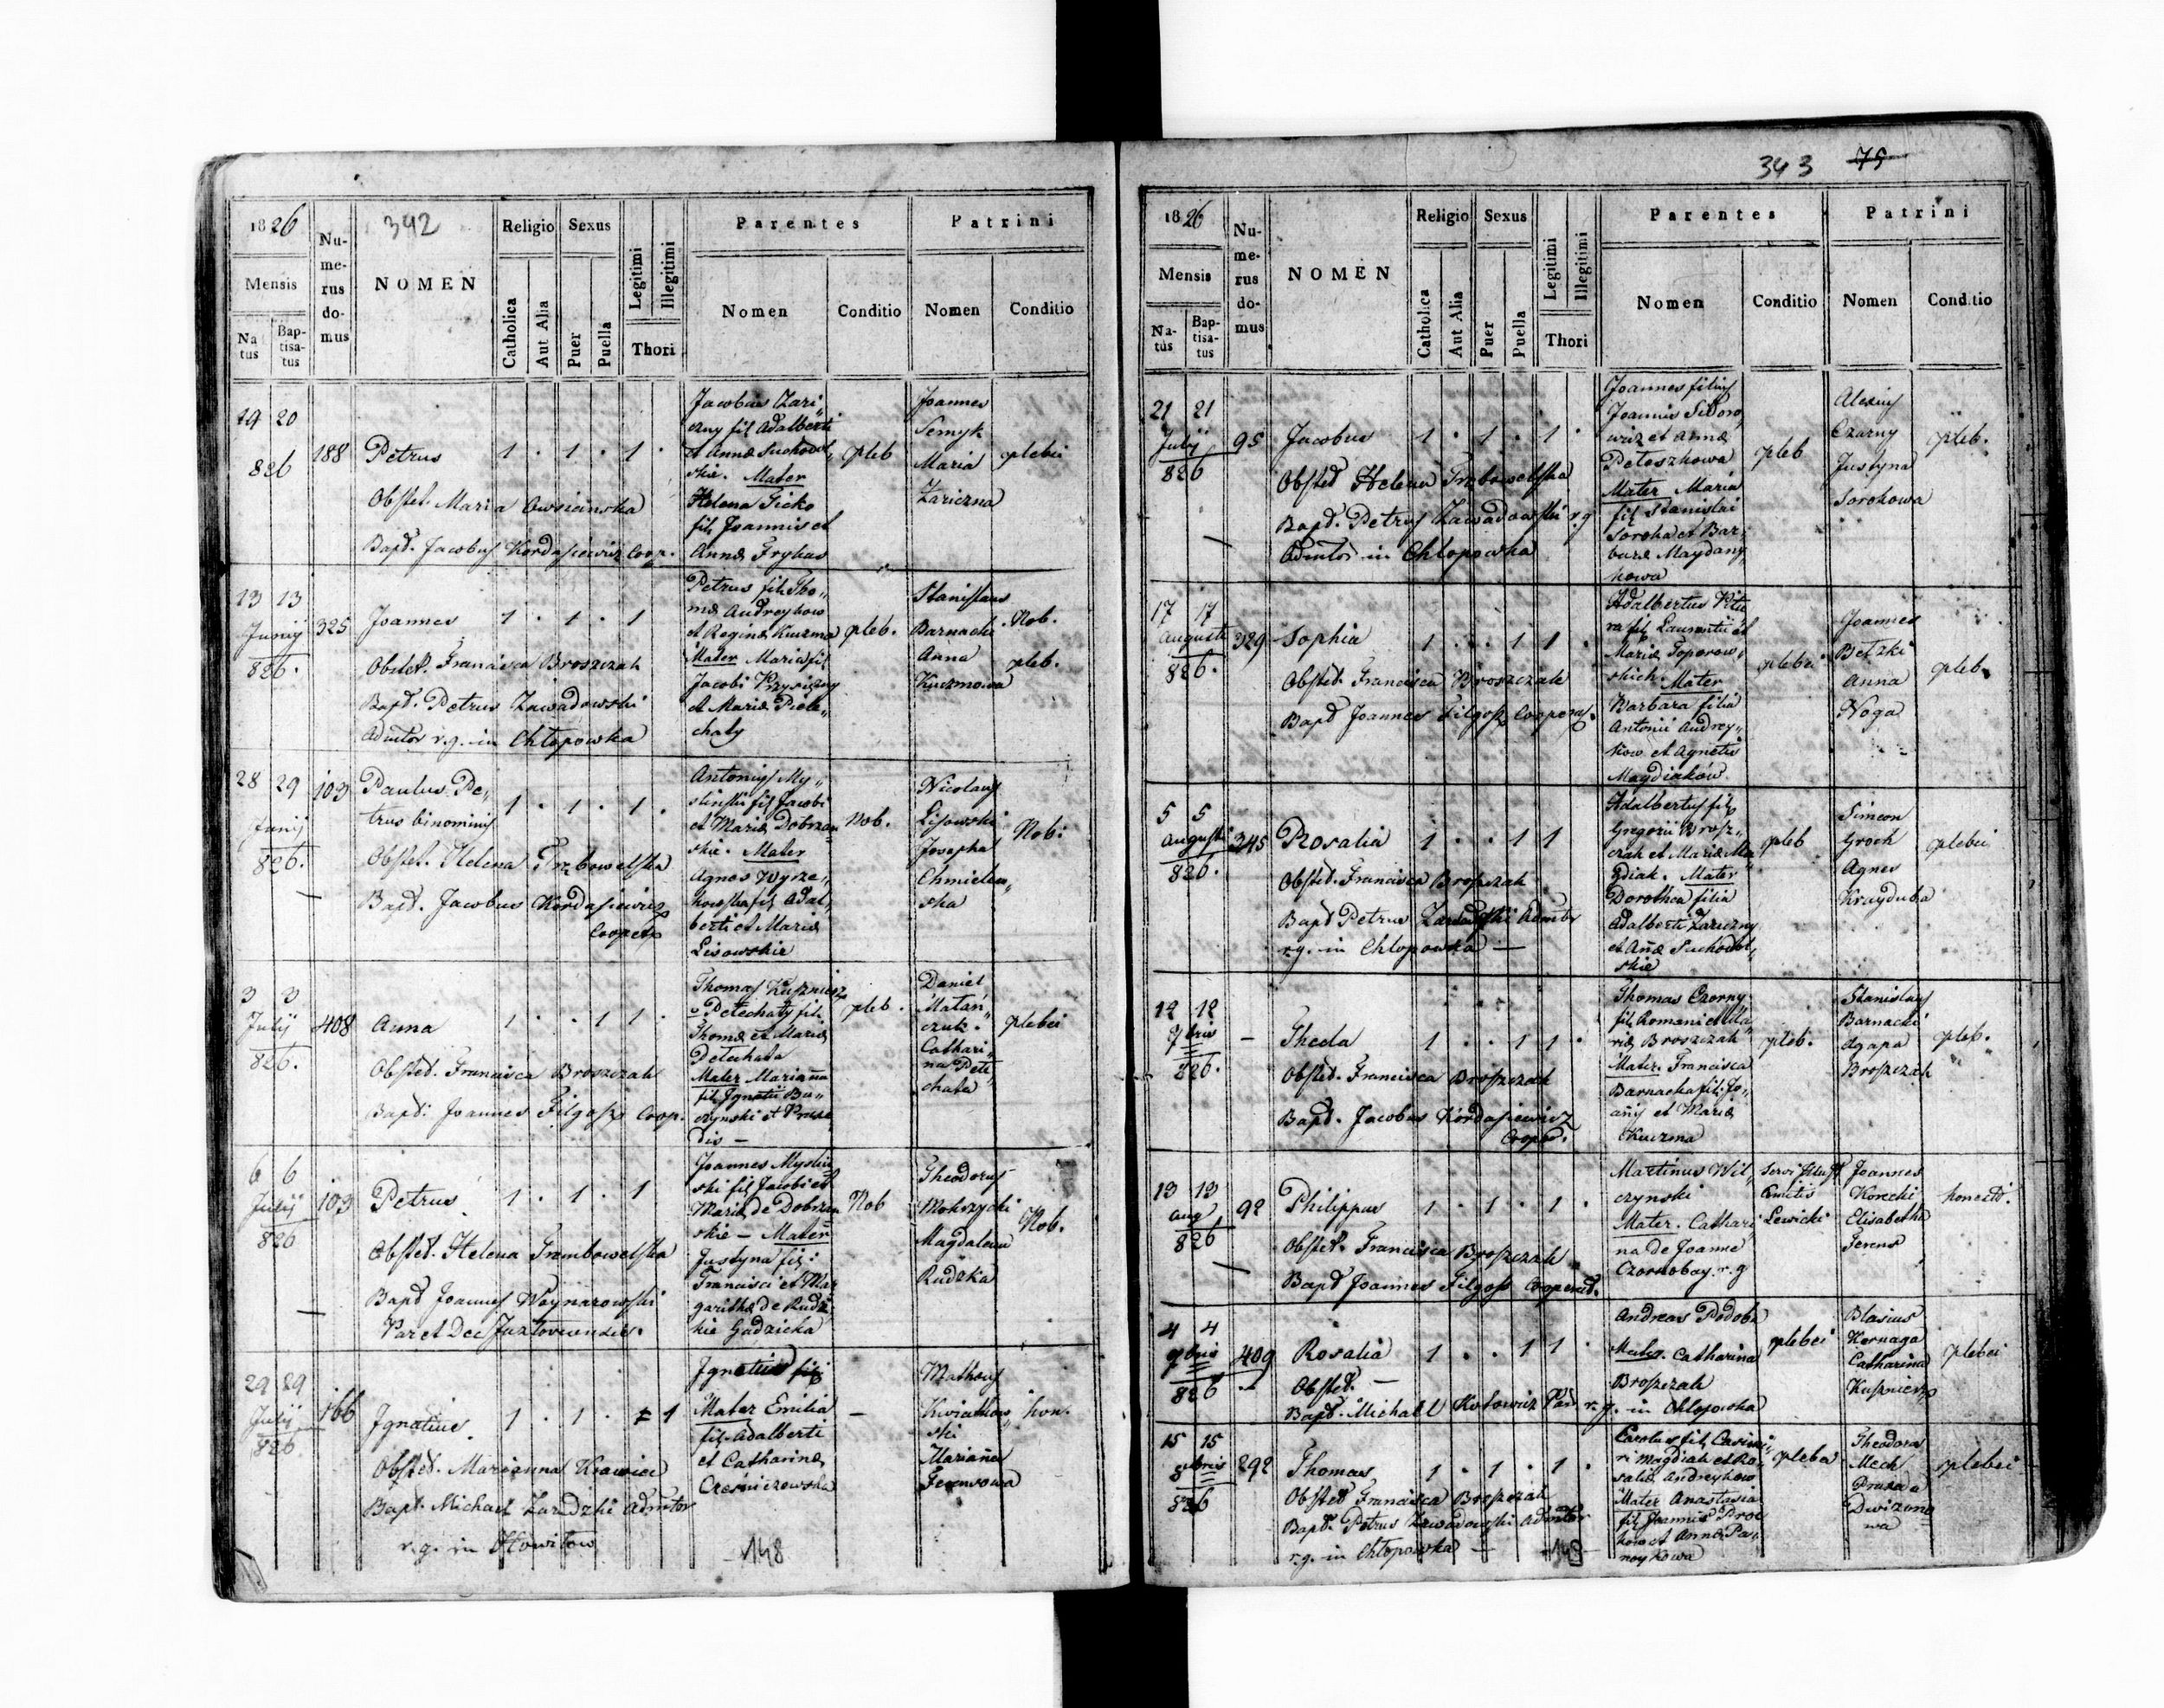 342
1826
Mensis
Na tus
Bap- tisa- tus
Nu- me- rus do- mus
NOMEN
Religio
Catholica
Aut Alia
Sexus
Puer
Puella
Legitimi
Illegitimi
Thori
Parentes
Nomen
Conditio
Patrini
Nomen
Conditio
19 20
826
188
Petrus
1 . 1 . 1 .
Obstet. Maria Owsicinska
Bapt. Jacobus Kordasiewicz Coop.
Jacobus Zari„
czny fil Adalberti
et Annæ Suchodol„
skie. Mater
Helena Sicko
fil Joannis et
Annæ Frykas
pleb
Joannes
Semyk
Maria
Zariczna
plebei
13 13
Junij
826.
325
Joannes
1 . 1 . 1
Obstet. Francisca Broszczak
Bapt. Petrus Zawadowski
Admtor r.g. in Chłopowka
Petrus fil. Tho„
mæ Andreykow
et Reginæ Kuczma
Mater Maria fil
Jacobi Przysiężny
et Mariæ Piele„
chaty
pleb.
Stanislaus
Barnacki
Anna
Kuczmowa
Nob.
pleb.
28 29
Junij
826.
103
Paulus Pe„
trus binominis
1 . 1 . 1 .
Obstet. Helena Trębowelska
Bapt. Jacobus Kordasiewicz
Cooper
Antonius My„
slinski fil Jacobi
et Mariæ Dobrzan
skie. Mater
Agnes Wyrze„
kowska fil Adal„
berti et Mariæ
Lisowskie
Nob.
Nicolaus
Lisowski
Josepha
Chmielew„
ska
Nob:
3 3
Julij
826.
408
Anna
1 . . 1 1 .
Obstet. Francisca Broszczak
Bapt: Joannes Filgosz Coop.
Thomas Kusznierz
Petechaty fil.
Thomæ et Mariæ
Petechata
Mater Marianna
fil Ignatii Bu„
czynski et Praxe
dis —
pleb.
Daniel
Matań„
czuk.
Cathari„
na Pete„
chata
plebei
6 6
Julij
826
103
Petrus
1 . 1 . 1
Obstet. Helena Trembowelska
Bapt Joannes Woynarowski
Par et Dec Jaztoviensis.
Joannes Myslin
ski fil Jacobi et
Mariæ de Dobrzan
skie — Mater
Justyna fil.
Francisci et Mar
garithæ de Rudz
kie Gadzicka
Nob
Theodorus
Mokrzycki
Magdalena
Rudzka
Nob.
29 29
Julij
826.
166
Ignatius
1 . 1 . 1
Obstet. Marianna Krawiec
Bapt. Michael Zardzki Admtor
r.g. in Howiłow
Ignatius fil
Mater Emilia
fil. Adalberti
et Catharinæ
Cześniczowska
—
Matheus
Kwiatkow„
ski
Marianna
Ferensowa
hon.
148
343 75
1826
Mensis
Na- tus
Bap- tisa- tus
Nu- me- rus do- mus
NOMEN
Religio
Catholica
Aut Alia
Sexus
Puer
Puella
Legitimi
Illegitimi
Thori
Parentes
Nomen
Conditio
Patrini
Nomen
Conditio
21 21
Julij
826
95
Jacobus
1 . 1 . 1 .
Obstet Helena Trębowelska
Bapt. Petrus Zawadowski r.g
Admtor in Chłopowka
Joannes filius
Joannis Sidoro„
wicz et Annæ
Peteszkowa
Mater Maria
fil Stanislai
Soroka et Bar„
baræ Maydany„
kowa
pleb
Alexius
Czarny
Justyna
Sorokowa
pleb.
17 17
Augusti
826.
329
Sophia
1 . . 1 1 .
Obstet. Francisca Broszczak
Bapt Joannes Filgosz Cooper.
Adalbertus Pitu
ra fil Laurentii et
Mariæ Toporow„
skich. Mater
Barbara filia
Antonii Andrey„
kow et Agnetis
Magdiaków
plebei
Joannes
Betzki
Anna
Noga
pleb.
5 5
Augusti
826.
345
Rosalia
1 . . 1 1
Obstet. Francisca Broszczak
Bapt Petrus Zawadowski Admtor
r.g. in Chłopowka —
Adalbertus fil
Gregorii Brosz„
czak et Mariæ Ma
gdiak. Mater
Dorothea filia
Adalberti Zariczny
et Annæ Suchodol„
skie
pleb
Simeon
Groch
Agnes
Krayduba
plebei
12 12
7bris
826.
—
Thecla
1 . . 1 1 .
Obstet. Francisca Broszczak
Bapt. Jacobus Kordasiewicz
Cooper.
Thomas Czorny
fil Romani et Ma„
riæ Broszczak
Mater. Francisca
Barnacka fil. Jo„
anis et Mariæ
Kuczma
pleb.
Stanislaus
Barnacki
Agapa
Broszczak
pleb.
13 13
Aug
826
92
Philippus
1 . 1 . 1 .
Obstet. Francisca Broszczak
Bapt Joannes Filgosz Cooperat.
Martinus Wil„
czynski
Mater. Cathari
na de Joanne
Czornobay. r.g
Servi Illust
Comitis
Lewicki
Joannes
Korecki
Elisabetha
Ferens
honesti.
4 4
7bris
826
409
Rosalia
1 . . 1 1 .
Obstet. —
Bapt. Michael Kotowicz Par r.g. in Chłopowka
Andreas Podoba
Mater. Catharina
Broszczak
plebei
Blasius
Kernaga
Catharina
Kusznierz
plebei
15 15
8bris
826
292
Thomas
1 . 1 . 1 .
Obstet Francisca Broszczak
Bapt. Petrus Zawadowski Admtor
r.g. in Chłopowka —
Carolus fil. Casimi„
ri Magdiak et Ro„
saliæ Andreykow
Mater Anastasia
fil Joannis Proc
kow et Annæ Pa„
noykowa
plebei
Theodorus
Mech
Praxeda
Dwizono
wa
plebei
148